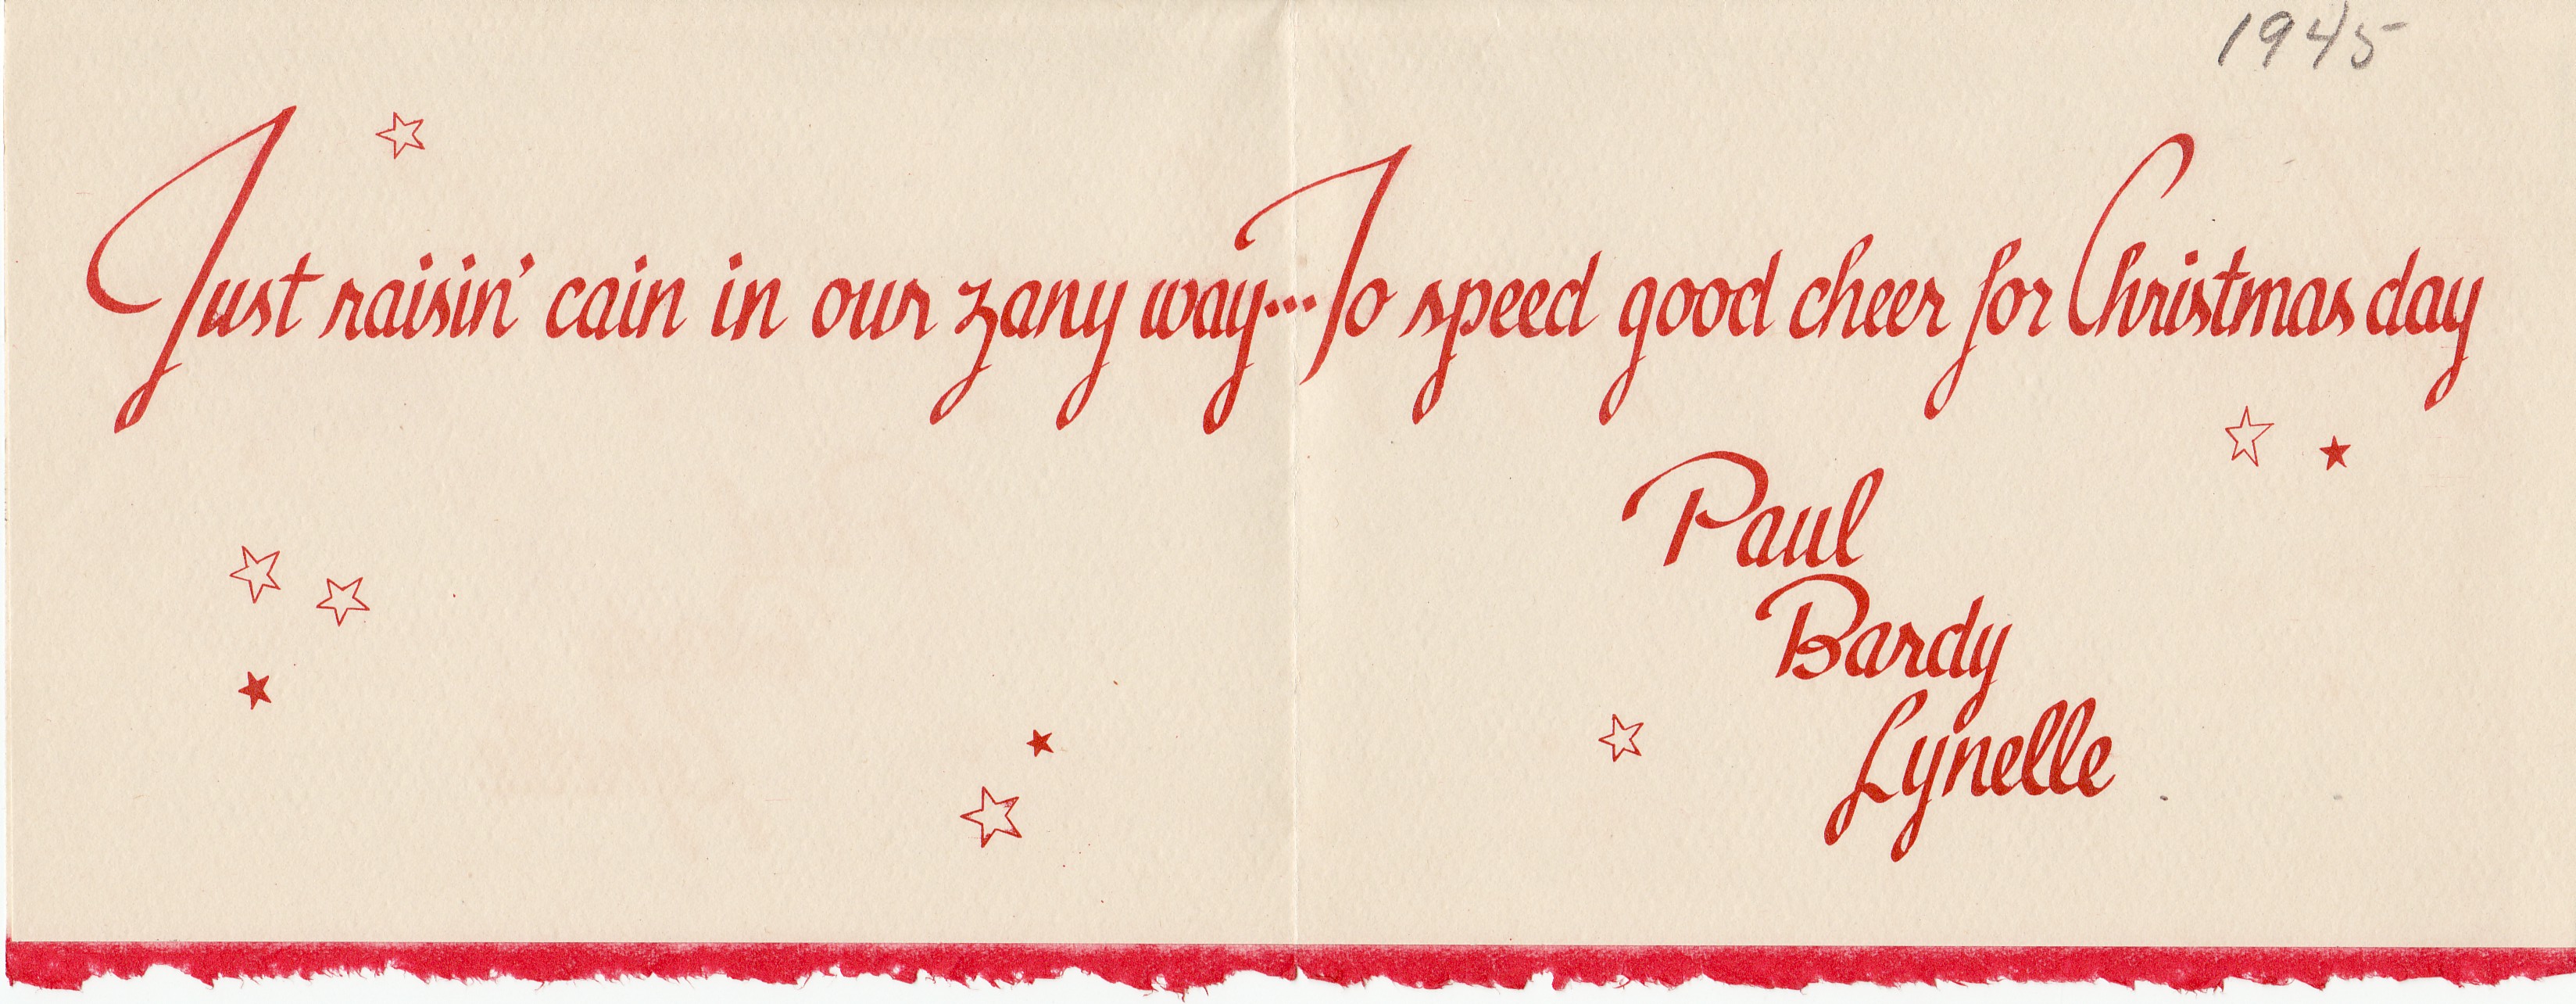 1945
Just raisin' cain in our zany way...To speed good cheer for Christmas day
Paul
Bardy
Lynelle